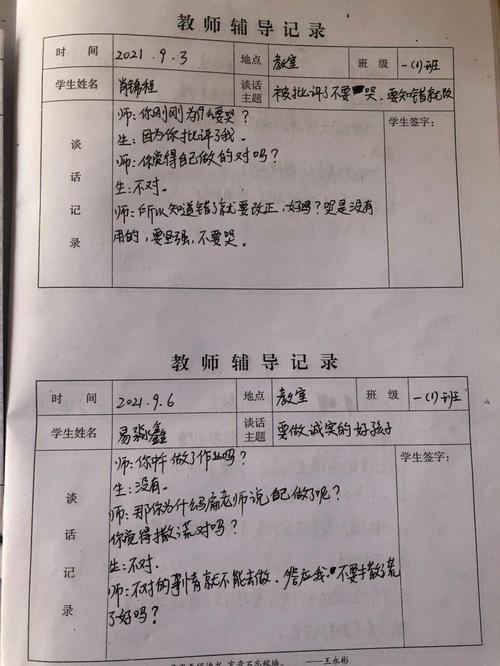 教师辅导记录
时 间 2021.9.3 地点 教室 班 级 一(1)班
学生姓名 肖锦程 谈话主题 被批评了不要哭，要知错就改
谈话记录 学生签字：
师：你刚刚为什么要哭？
生：因为你批评了我。
师：你觉得自己做的对吗？
生：不对。
师：所以知道错了就要改正，好吗？哭是没有
用的，要坚强，不要哭。
教师辅导记录
时 间 2021.9.6 地点 教室 班 级 一(1)班
学生姓名 易鑫 谈话主题 要做诚实的好孩子
谈话记录 学生签字：
师：你中午做了作业吗？
生：没有。
师：那你为什么骗老师说自己做了呢？
你觉得撒谎对吗？
生：不对。
师：不对的事情就不能去做。答应我.不要撒谎
了好吗？
——王永彬